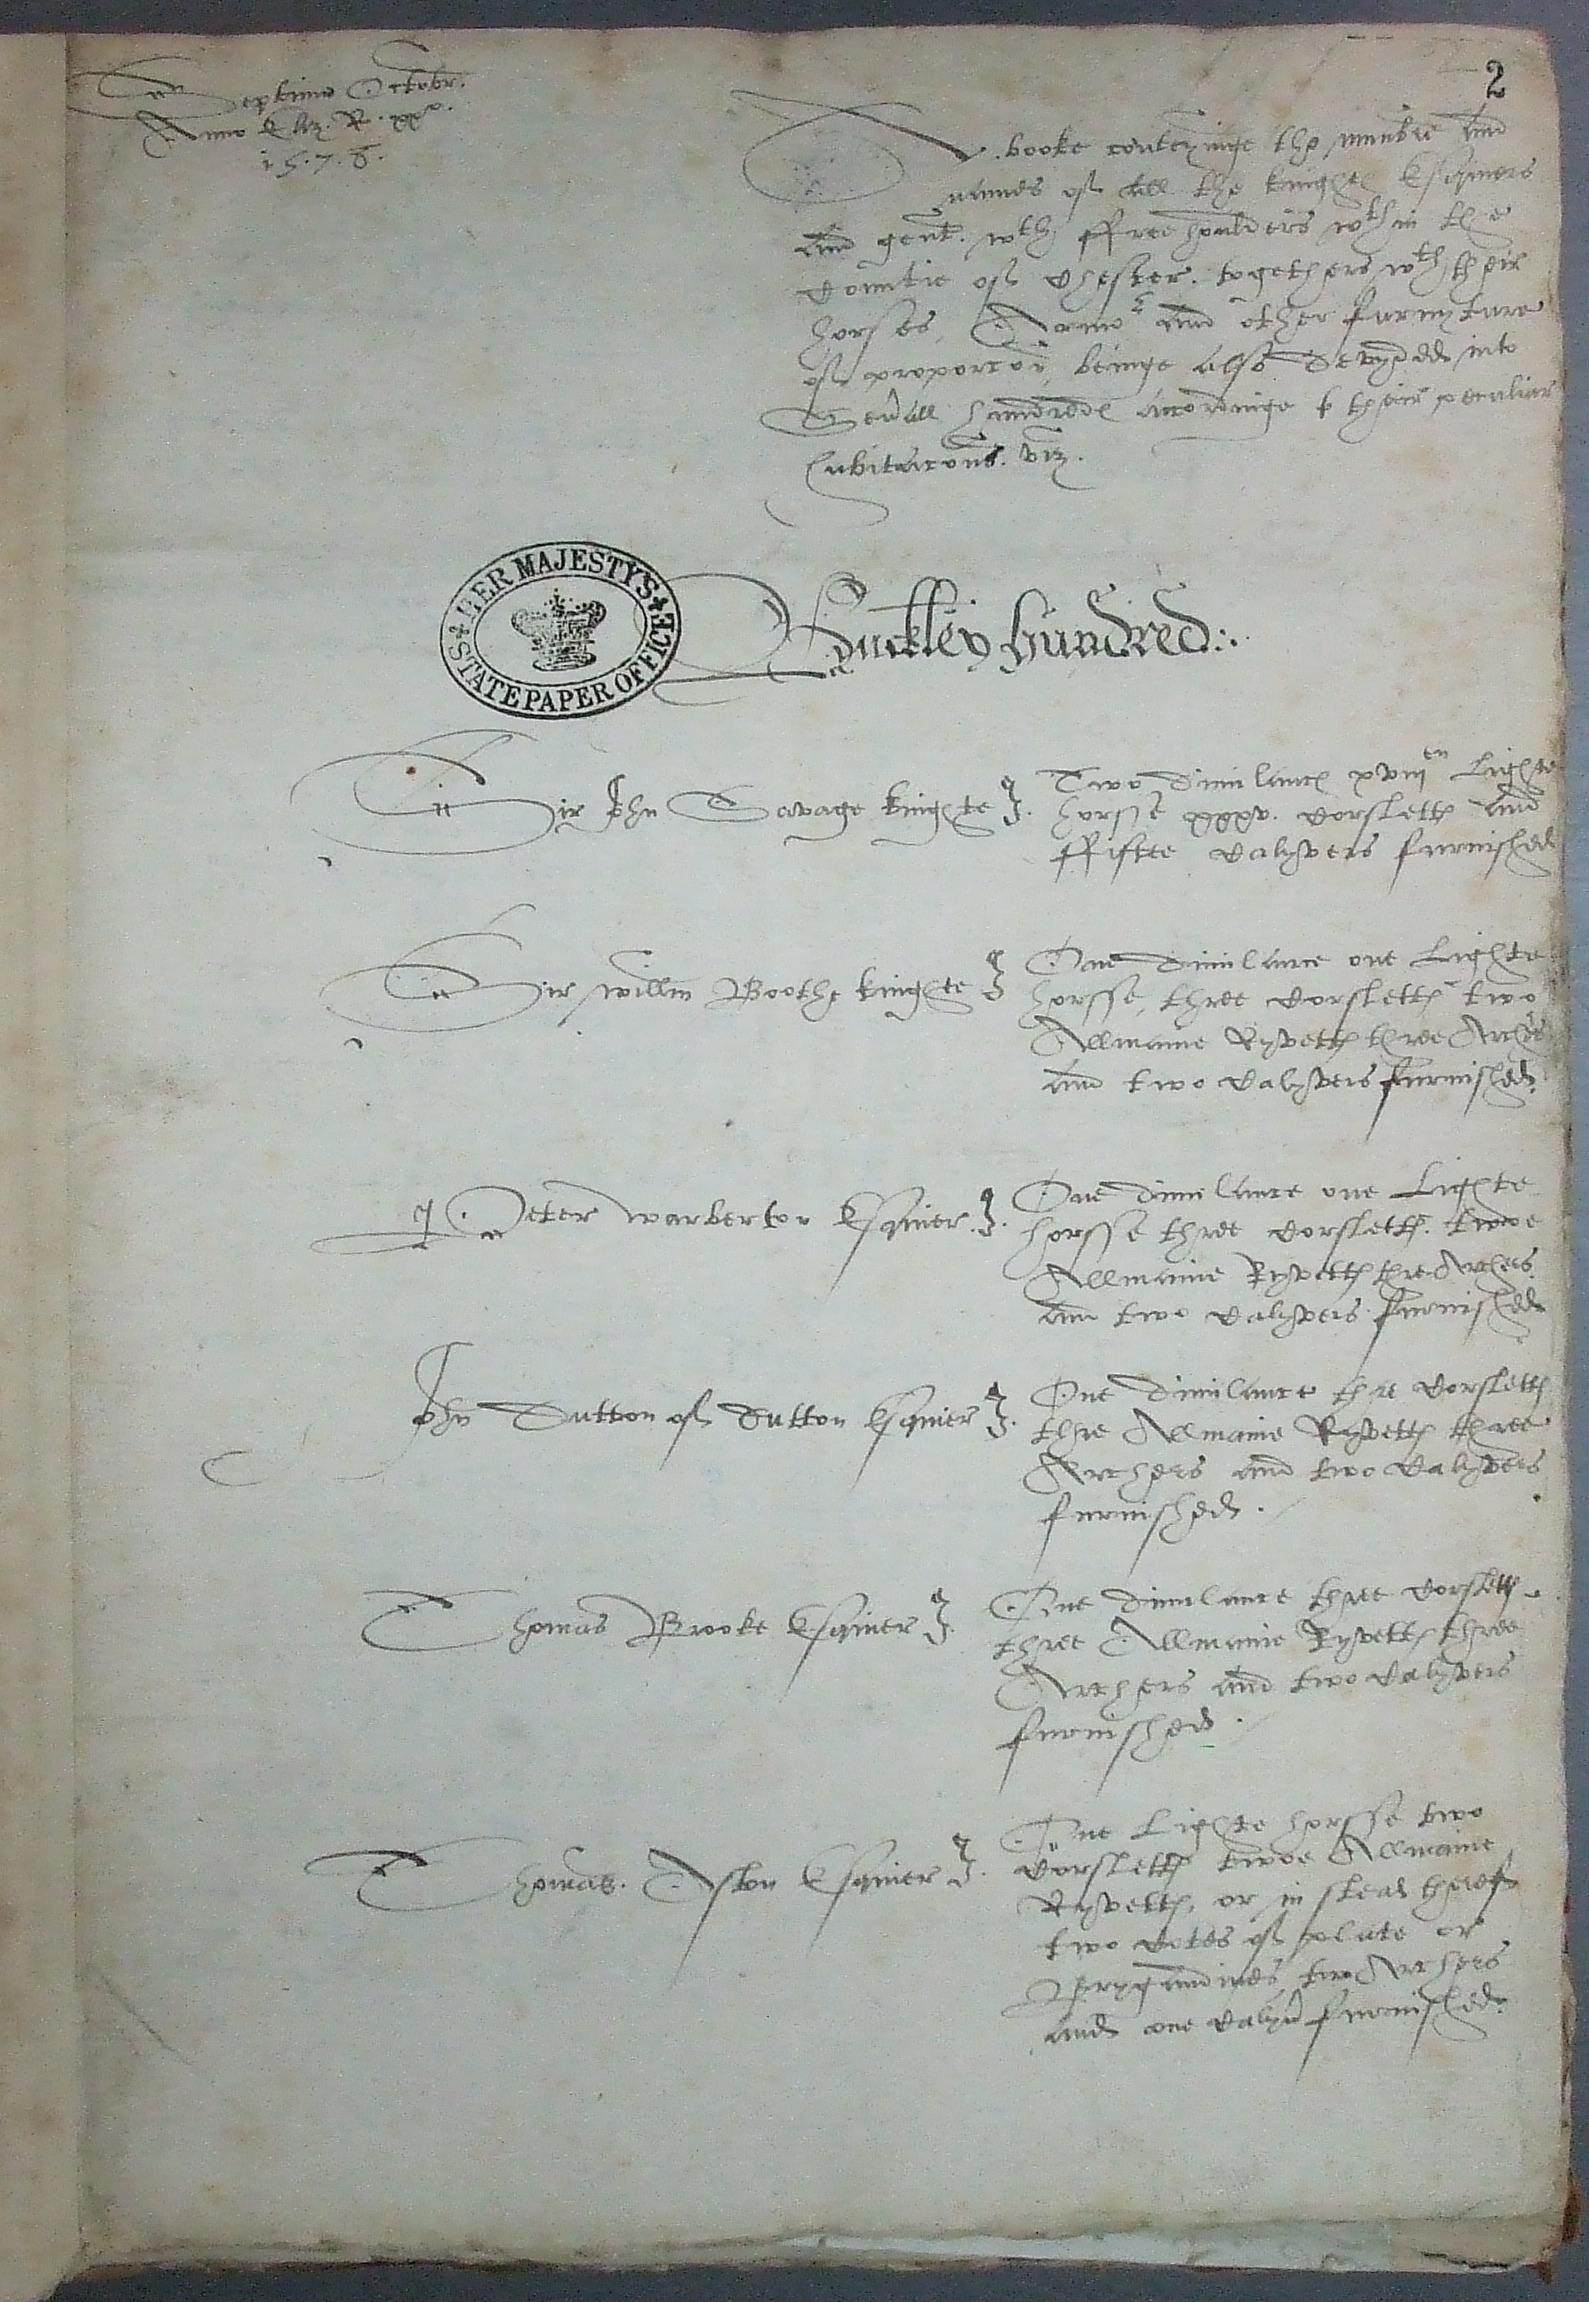 Septimo Octobr.
Anno Eliz. R. xxo.
1578.
2
A booke conteyninge the numbre and
names of all the knightes Esquiers
and gent. wth ffreehoulders wthin the
Countie of Chester. togethers wth their
horses, Armor and other furnyture
of proporcon, beinge also devyded into
Seuall hundredes accordinge to their peculiar
habitacons. viz.
HER MAJESTY'S
STATE PAPER OFFICE
Buckley hundred:.
Sir John Savage knighte
Two dimilances xviijen Lighte
horsse xxxv. Corslettes and
ffiftee Calyvers furnished
Sir Willm Boothe knighte
One dimilance one Lighte
horsse, three Corslettes two
Allmaine Ryvettes three Archers
and two Calyvers furnished.
Peter Warberton Esquier.
One dimilance one Lighte
horsse three Corslettes. twoe
Allmaine Ryvettes thre Archers
and two Calyvers furnished
John Dutton of Dutton Esquier
One dimilance thre Corslettes
thre Allmaine Ryvettes three
Archers and two Calyvers
furnished.
Thomas Brooke Esquier
One dimilance three Corslettes
three Allmaine Ryvettes three
Archers and two Calyvers
furnished.
Thomas. Aston Esquier
One Lighte horsse two
Corslettes twoe Allmaine
Ryvettes, or in stead thereof
two Cotes of plate or
Brygandines two Archers
and one Calyver furnished.